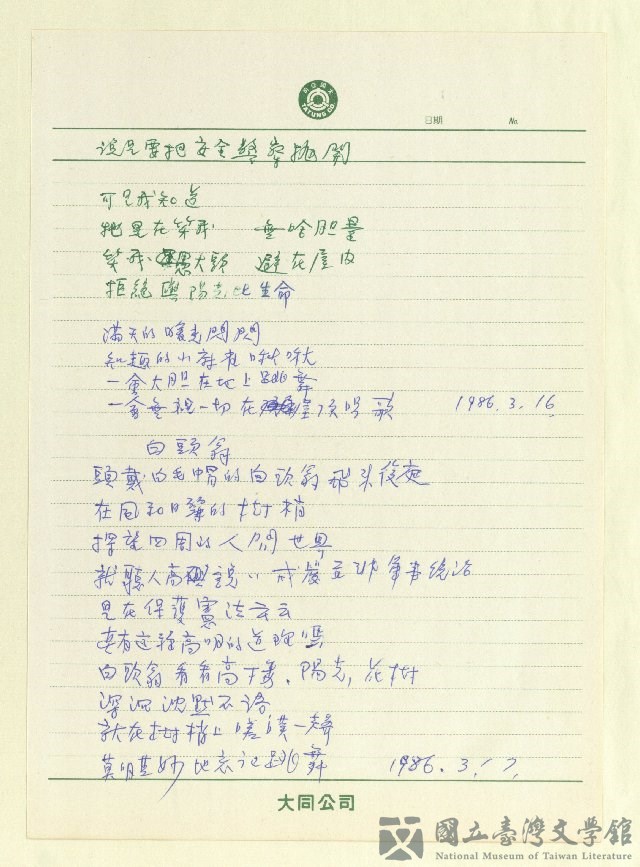 大同公司
TATUNG CO.
日期 No.
這是要把安全警察撤開
可是我知道
牠是在笑我 無啥胆量
笑我 愚大頭 避在屋内
拒絕與陽光比生命
滿天的暖光閃閃
知趣的小麻雀啾啾
一會大胆在地上跳舞
一會無視一切在屋頂唱歌 1986.3.16
白頭翁
頭戴白毛帽的白頭翁飛來後庭
在風和日麗的樹梢
探望四周的人間世界
就聽人高 說,,戒嚴 軍事統治
是在保護憲法云云
真有這種高明的道理嗎
白頭翁看看高樓、陽光,花樹
深沉沈默不語
就在樹梢上嗟嘆一聲
莫明其妙地忘記跳舞 1986.3.17
大同公司
國立臺灣文學館
National Museum of Taiwan Literature